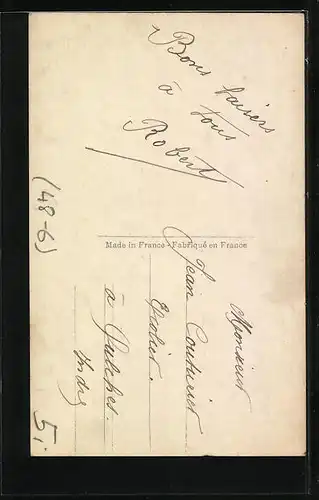 Bons baisers
à tous
Robert
Made in France - Fabriqué en France
Monsieur
Jean Couturier
Ecolier.
à
Indre
(48-6)
5,-